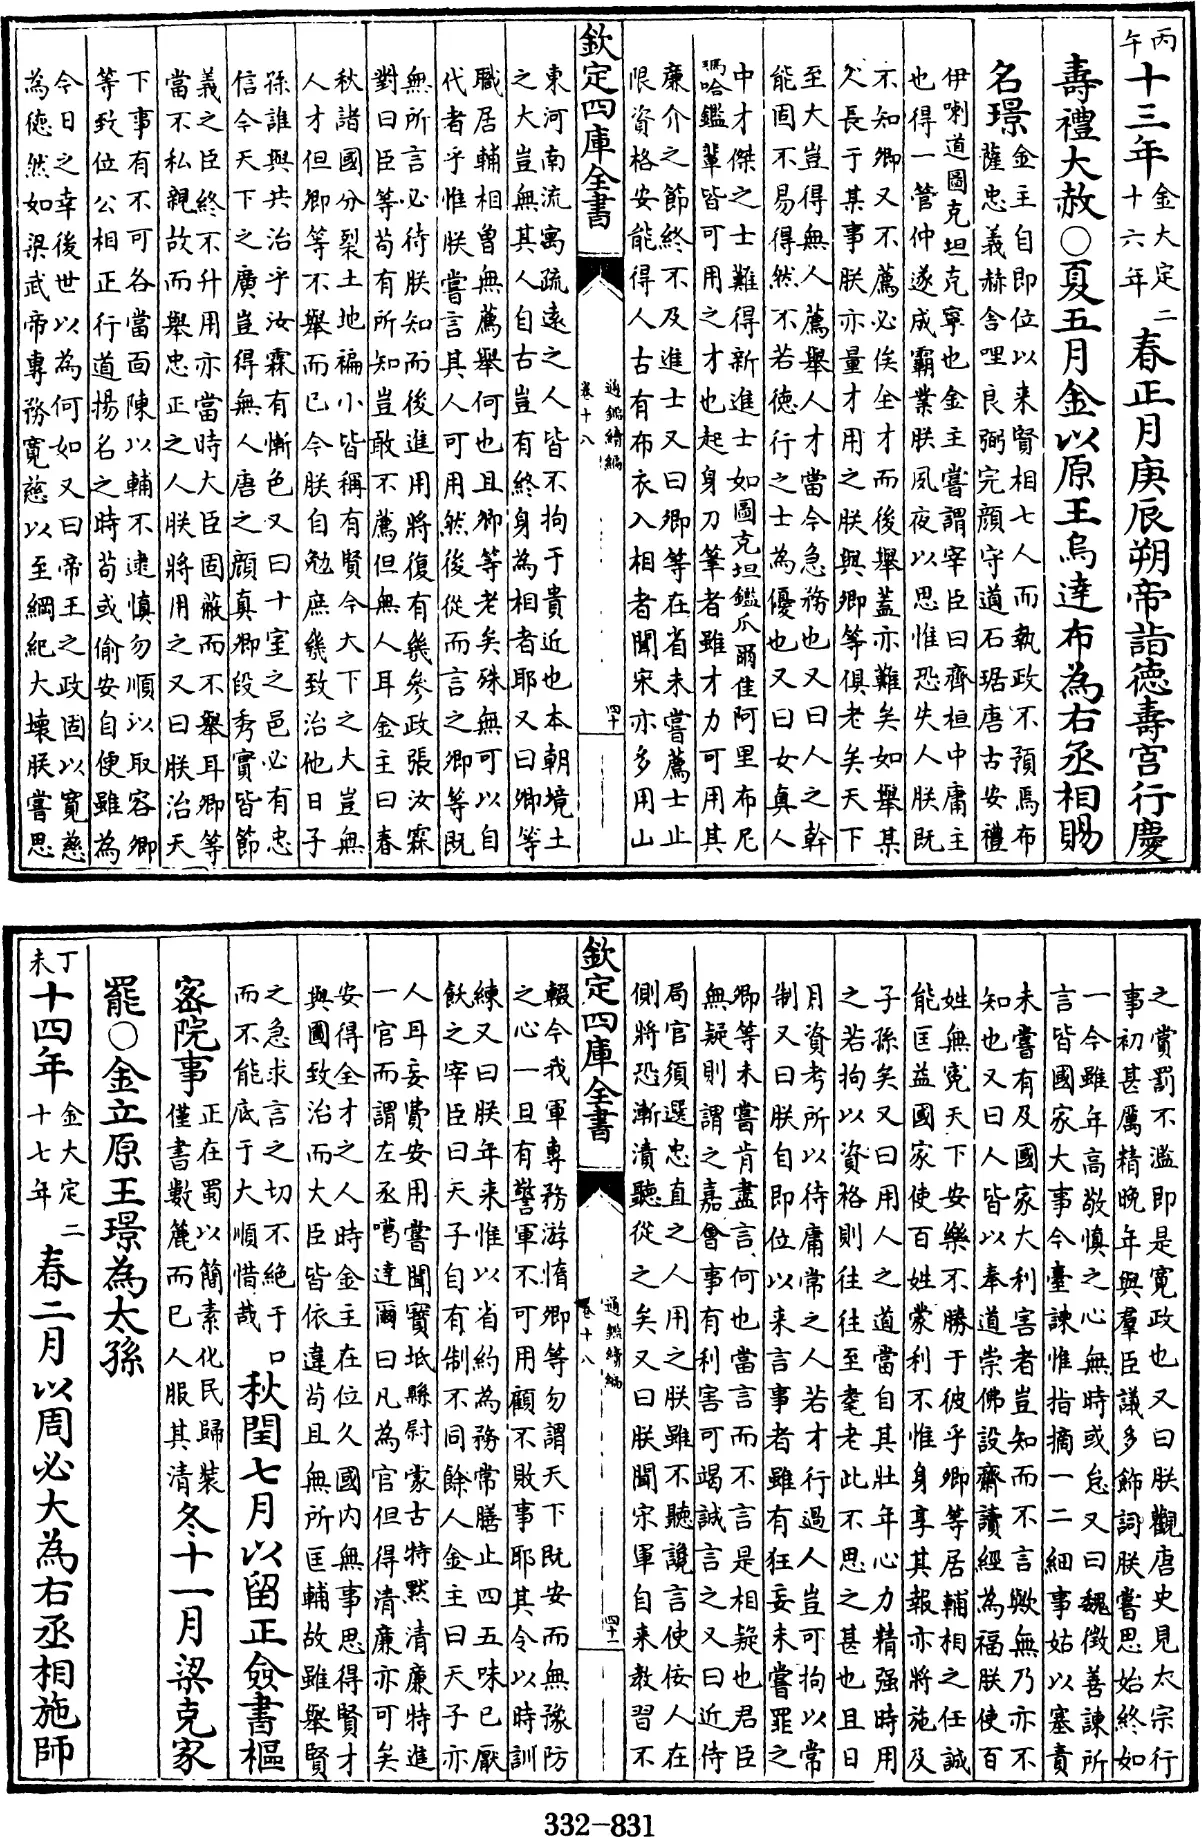 丙午十三年金大定二十六年春正月庚辰朔帝詣德壽宮行慶
壽禮大赦○夏五月金以原王烏達布為右丞相賜
名璟金主自即位以來賢相七人而執政不預焉布
薩忠義赫舍哩良弼完顔守道石琚唐古安禮
伊喇道圖克坦克寧也金主嘗謂宰臣曰齊桓中庸主
也得一管仲遂成霸業朕夙夜以思惟恐失人朕既
不知卿又不薦必俟全才而後舉蓋亦難矣如舉某
人長于某事朕亦量才用之朕與卿等俱老矣天下
至大豈得無人薦舉人才當今急務也又曰人之幹
能固不易得然不若德行之士為優也又曰女真人
中才傑之士難得新進士如圖克坦鑑瓜爾佳阿里布尼
瑪哈鑑輩皆可用之才也起身刀筆者雖才力可用其
廉介之節終不及進士又曰卿等在省未嘗薦士止
限資格安能得人古有布衣入相者聞宋亦多用山
欽定四庫全書
通鑑續編
卷十八
四十
東河南流寓疏遠之人皆不拘于貴近也本朝境土
之大豈無其人自古豈有終身為相者耶又曰卿等
職居輔相曾無薦舉何也且卿等老矣殊無可以自
代者乎惟朕嘗言其人可用然後從而言之卿等既
無所言必待朕知而後進用將復有幾參政張汝霖
對曰臣等苟有所知豈敢不薦但無人耳金主曰春
秋諸國分裂土地褊小皆稱有賢今大下之大豈無
人才但卿等不舉而已今朕自勉庶幾致治他日子
孫誰與共治乎汝霖有慚色又曰十室之邑必有忠
信今天下之廣豈得無人唐之顔真卿段秀實皆節
義之臣終不升用亦當時大臣固蔽而不舉耳卿等
當不私親故而舉忠正之人朕將用之又曰朕治天
下事有不可各當面陳以輔不逮慎勿順以取容卿
等致位公相正行道揚名之時苟或偷安自便雖為
今日之幸後世以為何如又曰帝王之政固以寬慈
為德然如梁武帝專務寬慈以至綱紀大壞朕嘗思
之賞罰不濫即是寬政也又曰朕觀唐史見太宗行
事初甚厲精晚年與羣臣議多飾詞朕嘗思始終如
一今雖年高敬慎之心無時或怠又曰魏徵善諫所
言皆國家大事今臺諫惟指摘一二細事姑以塞責
未嘗有及國家大利害者豈知而不言歟無乃亦不
知也又曰人皆以奉道崇佛設齋讀經為福朕使百
姓無寃天下安樂不勝于彼乎卿等居輔相之任誠
能匡益國家使百姓蒙利不惟身享其報亦將施及
子孫矣又曰用人之道當自其壯年心力精强時用
之若拘以資格則往往至耄老此不思之甚也且日
月資考所以待庸常之人若才行過人豈可拘以常
制又曰朕自即位以來言事者雖有狂妄未嘗罪之
卿等未嘗肯盡言何也當言而不言是相疑也君臣
無疑則謂之嘉會事有利害可竭誠言之又曰近侍
局官須選忠直之人用之朕雖不聽讒言使佞人在
側將恐漸漬聽從之矣又曰朕聞宋軍自來教習不
欽定四庫全書
通鑑續編
卷十八
四十一
輟今我軍專務游惰卿等勿謂天下既安而無豫防
之心一旦有警軍不可用顧不敗事耶其令以時訓
練又曰朕年來惟以省約為務常膳止四五味已厭
飫之宰臣曰天子自有制不同餘人金主曰天子亦
人耳妄費安用嘗聞寶坻縣尉蒙古特默清廉特進
一官而謂左丞噶達爾曰凡為官但得清廉亦可矣
安得全才之人時金主在位久國內無事思得賢才
與圖致治而大臣皆依違苟且無所匡輔故雖舉賢
之急求言之切不絕于口
而不能底于大順惜哉秋閏七月以留正僉書樞
密院事正在蜀以簡素化民歸裝
僅書數簏而已人服其清冬十一月梁克家
罷○金立原王璟為太孫
丁未十四年金大定二十七年春二月以周必大為右丞相施師
332-831